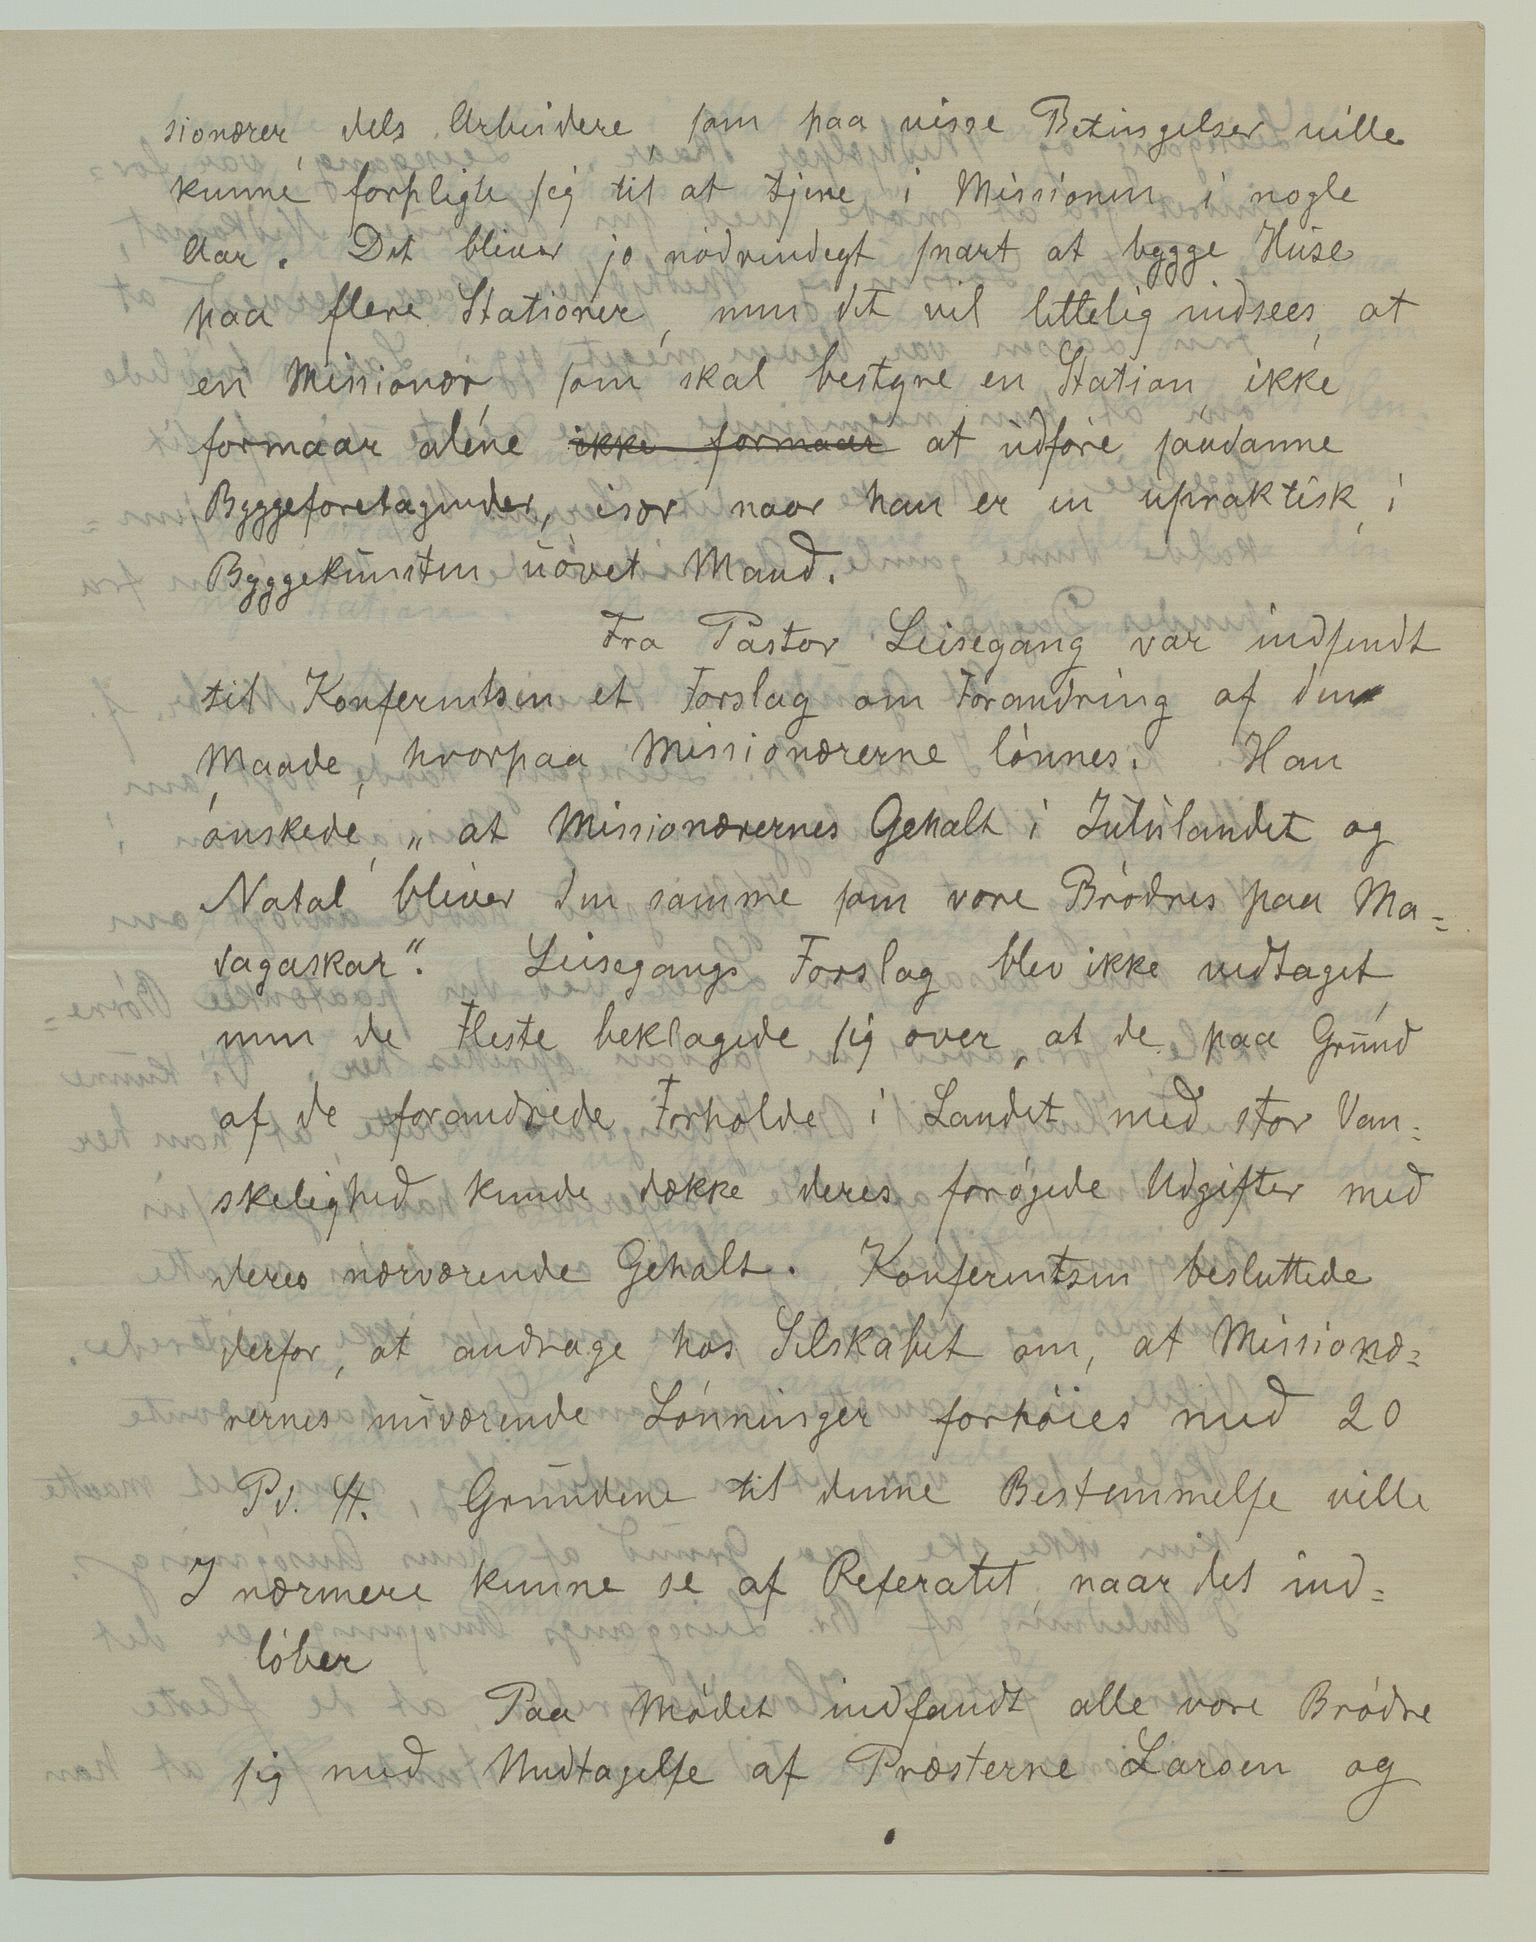 sionærer, dels Arbeidere som paa visse Betingelser ville
kunne forpligte sig til at tjene i Missionen i nogle
Aar. Det bliver jo nödvendigt snart at bygge Huse
paa flere Stationer, men det vil lettelig indsees, at
en Missionær, som skal bestyre en Station, ikke
formaar aléne ikke formaar at udföre saadanne
Byggeforetagender, især naar han er en upraktisk, i
Byggekunsten uövet Mand.
Fra Pastor Leisegang var indsendt
til Konferentsen et Forslag om Forandring af den
Maade, hvorpaa Missionærerne lönnes. Han
önskede, „at Missionærernes Gehalt i Zululandet og
Natal bliver den samme som vore Brödres paa Ma=
dagaskar“. Leisegangs Forslag blev ikke vedtaget,
men de Fleste beklagede sig over, at de paa Grund
af de forandrede Forholde i Landet med stor Van=
skelighed kunde dække deres forögede Udgifter med
deres nærværende Gehalt. Konferentsen besluttede
derfor, at andrage hos Selskabet om, at Missionæ=
rernes nuværende Lönninger forhöies med 20
Pd. St. Grundene til denne Bestemmelse ville
I nærmere kunne se af Referatet, naar det ind=
löber
Paa Mödet indfandt alle vore Brödre
sig med Undtagelse af Præsterne Larsen og